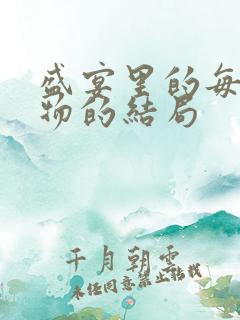 盛宴里的每
物的結局
千月朝雲
未经同意禁止转载